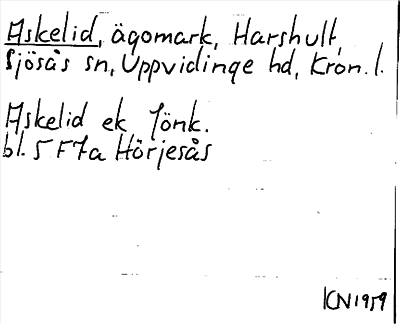 Askelid, ägomark, Harshult,
Sjösås sn, Uppvidinge hd, Kron. l.
Askelid ek Jönk.
bl. 5 F 7a Hörjesås
KN 1959